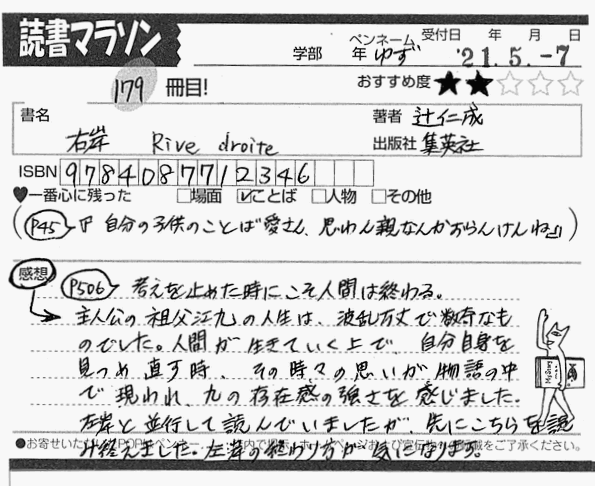 読書マラソン
学部 年 ペンネーム ゆず 受付日 年 月 日 '21.5.-7
179 冊目! おすすめ度 ★★☆☆☆
書名 著者 辻仁成
右岸 Rive droite 出版社 集英社
ISBN 9784087712346
♥一番心に残った □場面 ☑ことば □人物 □その他
(P45 『自分の子供のことば愛さん、思わん親なんかおらんけんね』)
感想 P506 考えを止めた時にこそ人間は終わる。
主人公の祖父江九の人生は、波乱万丈で数奇なも
のでした。人間が生きていく上で、自分自身を
見つめ直す時、その時々の思いが物語の中
で現われ、九の存在感の強さを感じました。
左岸と並行して読んでいましたが、先にこちらを読
み終えました。左岸の終わり方が気になります。
●お寄せいただいたPOP ペンネー をご了承ください。